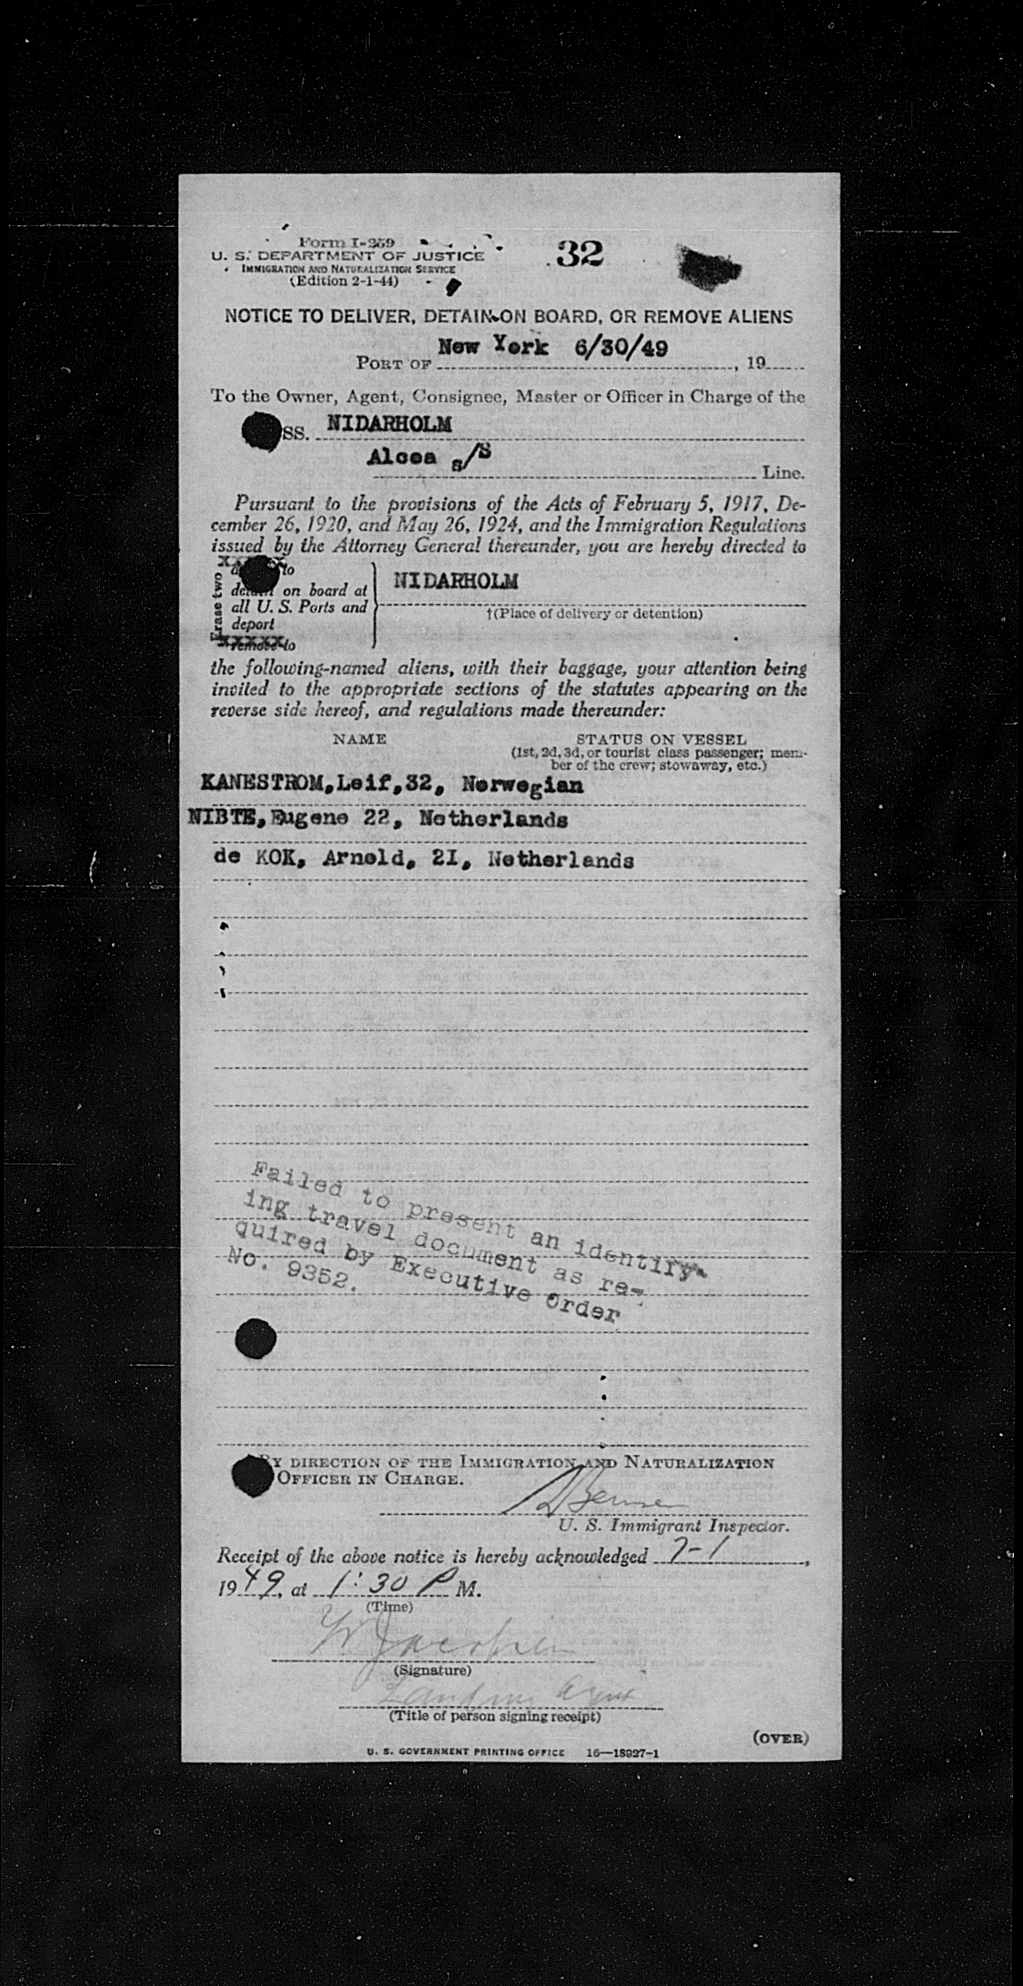 Form I-259
U. S. DEPARTMENT OF JUSTICE
IMMIGRATION AND NATURALIZATION SERVICE
(Edition 2-1-44)
32
NOTICE TO DELIVER, DETAIN ON BOARD, OR REMOVE ALIENS
PORT OF New York 6/30/49, 19
To the Owner, Agent, Consignee, Master or Officer in Charge of the
SS. NIDARHOLM
Alcoa s/s Line.
Pursuant to the provisions of the Acts of February 5, 1917, De-
cember 26, 1920, and May 26, 1924, and the Immigration Regulations
issued by the Attorney General thereunder, you are hereby directed to
Erase two
to
detain on board at
all U. S. Ports and
deport
remove to
NIDARHOLM
†(Place of delivery or detention)
the following-named aliens, with their baggage, your attention being
invited to the appropriate sections of the statutes appearing on the
reverse side hereof, and regulations made thereunder:
NAME
STATUS ON VESSEL
(1st, 2d, 3d, or tourist class passenger; mem-
ber of the crew; stowaway, etc.)
KANESTROM, Leif, 32, Norwegian
NIBTE, Eugene 22, Netherlands
de KOK, Arnold, 21, Netherlands
Failed to present an identify-
ing travel document as re-
quired by Executive Order
No. 9352.
BY DIRECTION OF THE IMMIGRATION AND NATURALIZATION
OFFICER IN CHARGE.
U. S. Immigrant Inspector.
Receipt of the above notice is hereby acknowledged 7-1,
1949, at 1:30 P M.
(Time)
W Jacobsen
(Signature)
Landing Agent
(Title of person signing receipt)
(OVER)
U. S. GOVERNMENT PRINTING OFFICE 16—18927-1